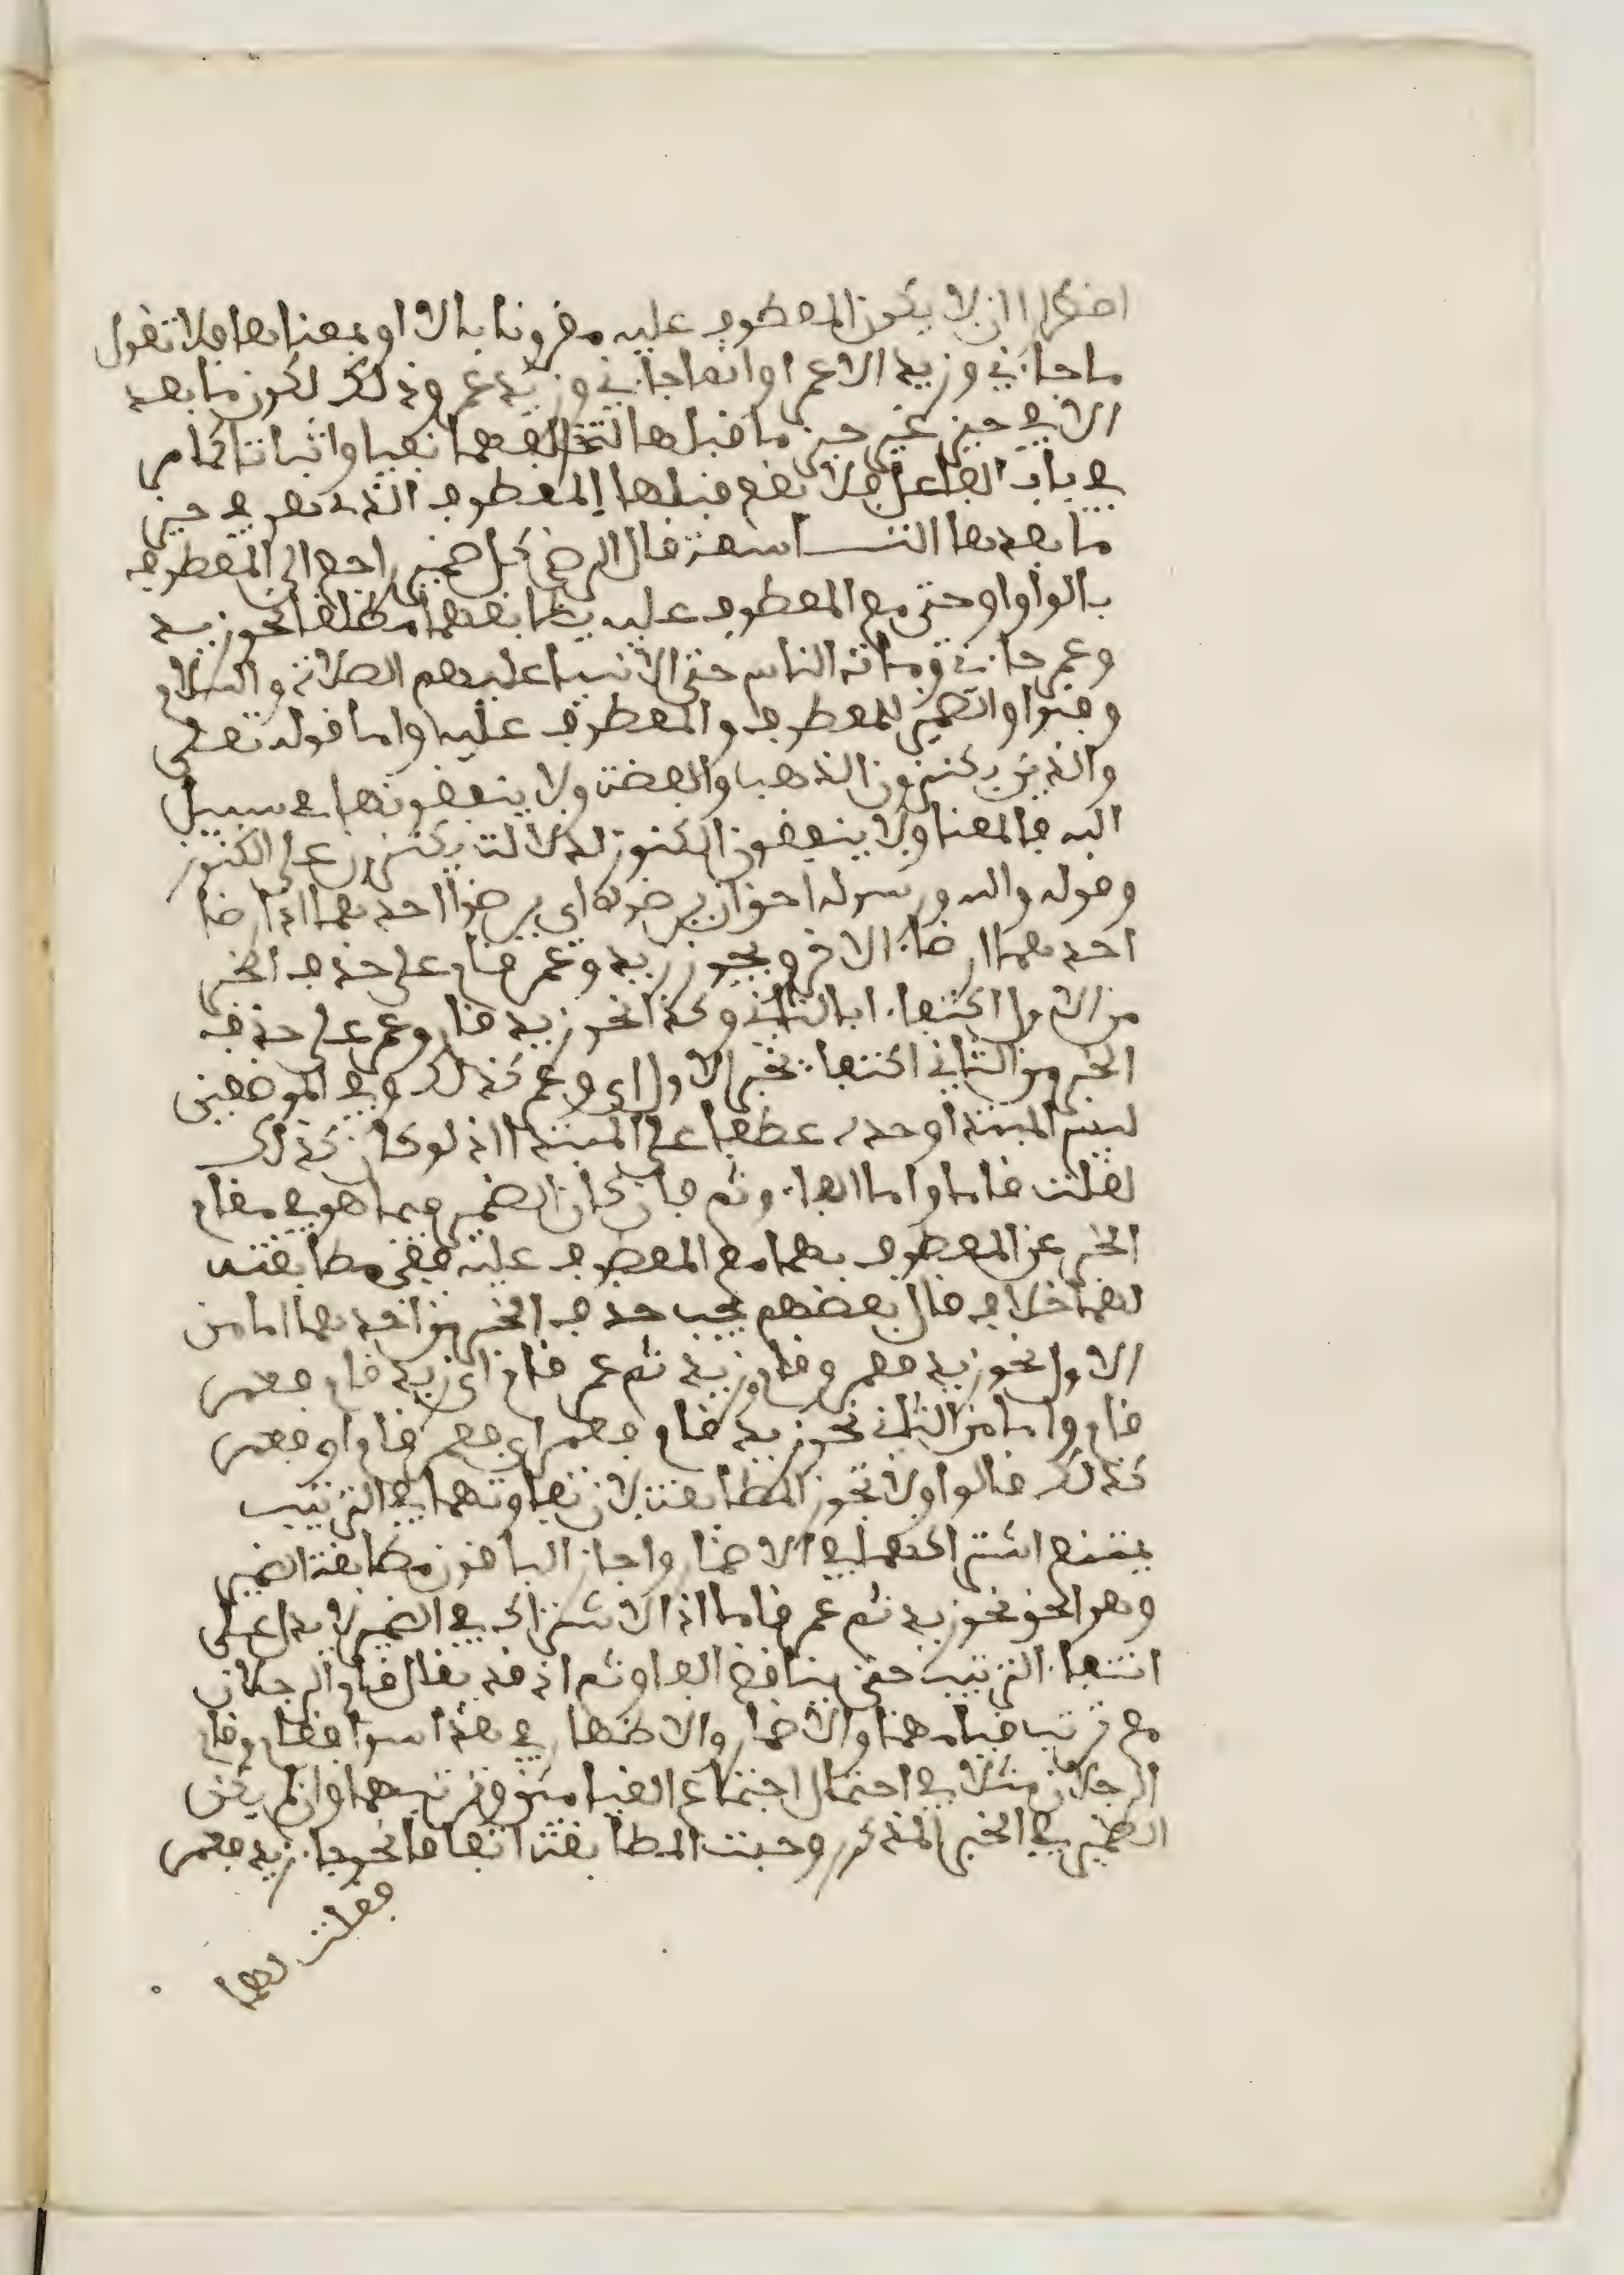 اضطرارا ان لا يكون المعطوف عليه مقرونا بالا او بمعناها فلا تقول
ما جاءني وزيد الا عمر او انما جاءني وزيد عمر وذلك لكون ما بعد
الا في حيز غير حيز ما قبلها لتخالفهما نفيا واثباتا كما مر
في باب الفاعل فلا يقع قبلها المعطوف الذي هو في حيز
ما بعدها التاسعة قال الرضي كل ضمير راجع الى المعطوف
بالواو او حتى مع المعطوف عليه يطابقهما مطلقا نحو زيد
وعمر جاءني ومات الناس حتى الانبيا عليهم الصلاة والسلام
وفنوا والضمير للمعطوف والمعطوف عليه واما قوله تعلى
والذين يكنزون الذهب والفضة ولا ينفقونها في سبيل
الله فالمعنا ولا ينفقون الكنوز لدلالة يكنزون على الكنوز
وقوله والله ورسوله احق ان يرضوه اي يرضوا احدهما اذ ارضا
احدهما ارضاء الاخر ويجوز زيد وعمر قام على حذف الخبر
من الاول اكتفاء بالثاني وكذا نحو زيد قام وعمر على حذف
الخبر من الثاني اكتفاء بخبر الاول اي وعمر كذلك وفي الموضعين
ليس المبتدا وحده عطفا على المبتدا اذ لو كان كذلك
لقلت قاما واما الفاء وثم فان كان الضمير فيما هو في مقام
الخبر عن المعطوف بهما مع المعطوف عليه ففي مطابقته
لهما خلاف قال بعضهم يجب حذف الخبر من احدهما اما من
الاول نحو زيد فعمر وقام وزيد ثم عمر قام اي زيد قام فعمر
قام واما من الثاني نحو زيد قام فعمر اي فعمر قام او فعمر
كذلك قالوا ولا تجوز المطابقة لان تفاوتهما في الترتيب
يمنع اشتراكهما في الاضمار واجاز الباقون مطابقة الضمير
وهو الحق نحو زيد ثم عمر قاما اذ الاشتراك في الضمير لا يدل على
انتفاء الترتيب حتى يناقض الفاء وثم اذ قد يقال قام الرجلان
مع ترتب قيامهما والاضمار والاظهار في هذا سوا فقام وقام
الرجلان مثلا في احتمال اجتماع القيامين وترتبهما وان لم يكن
الضمير في الخبر المذكور وجبت المطابقة اتفاقا نحو جاء زيد فعمر
فقلت لهما